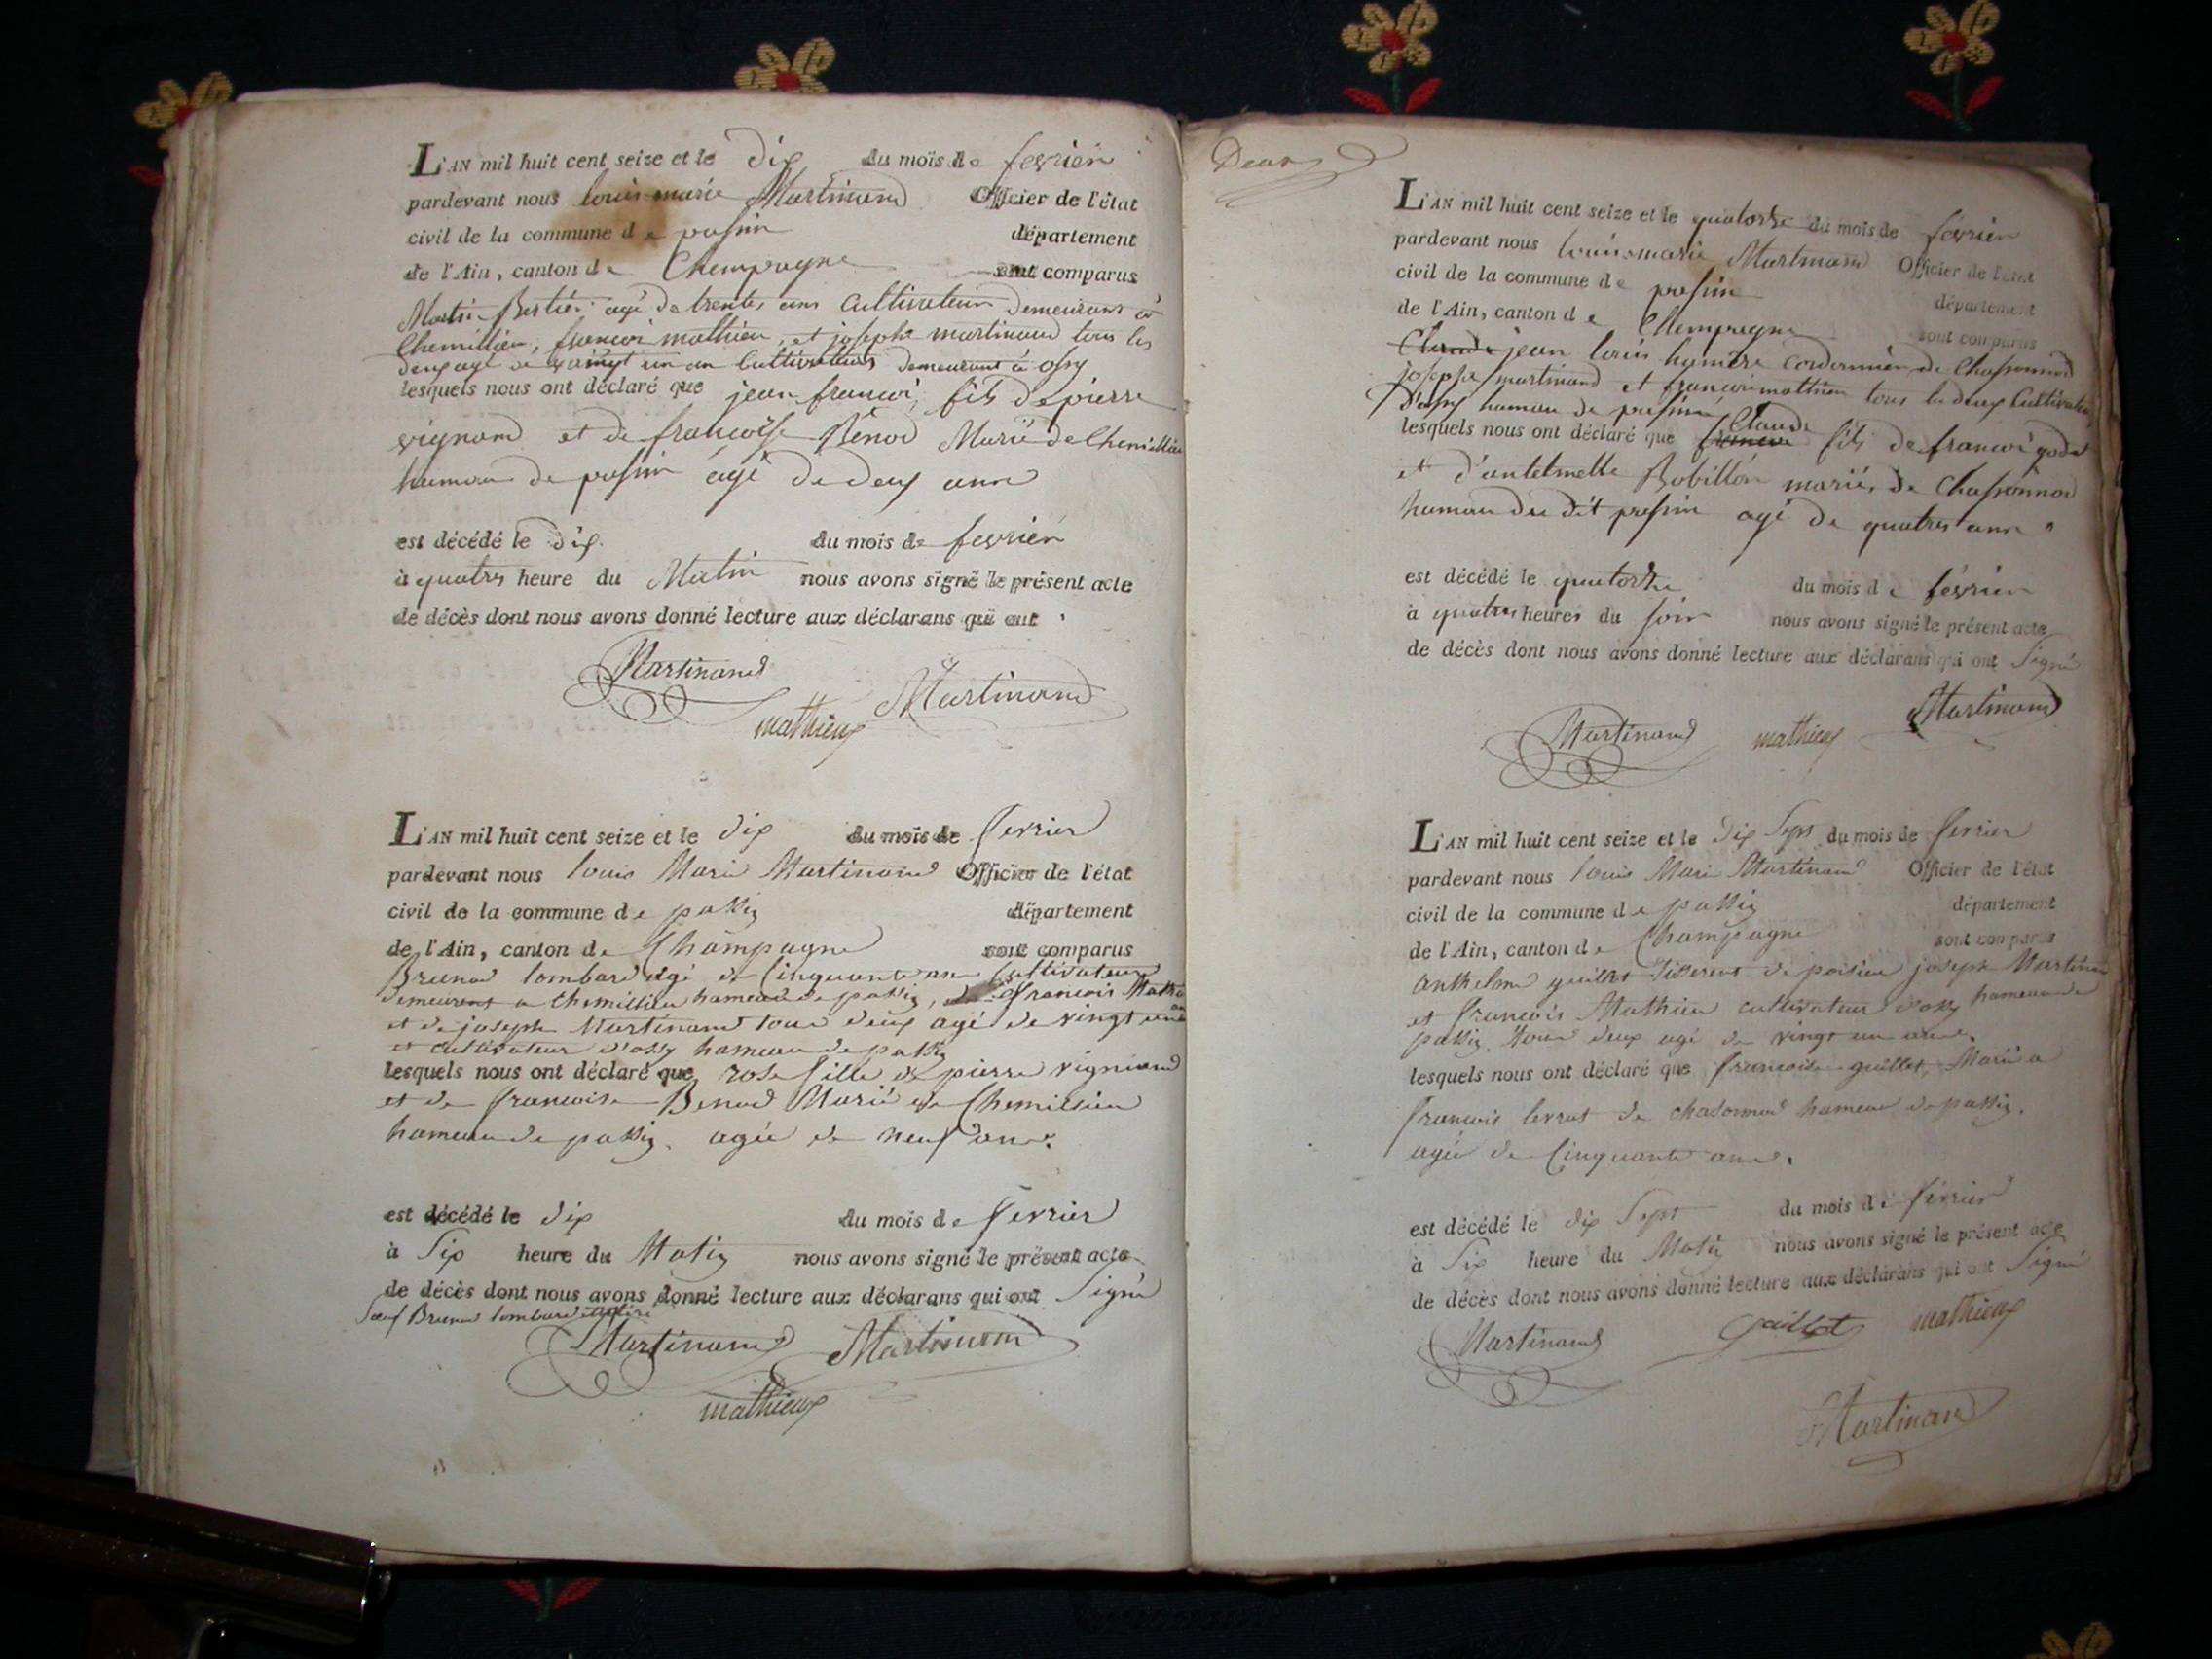 L'AN mil huit cent seize et le dix du mois de fevrier
pardevant nous louis marie Martinand Officier de l'état
civil de la commune de passin département
de l'Ain, canton de Chempagne sont comparus
Bertier agé de trentes ans cultivateur demeurant à
Chemillieu, francoi mathieu, et josephe martinand tous les
deux agé de vaingt un an cultivateurs demeurant à ossy
lesquels nous ont déclaré que jean francoi, fils de pierre
vignand et de francoise Benod Marié de Chemillieu
hamau de passin agé de deux anne
est décédé le dix du mois de fevrier
à quatres heure du Matin nous avons signé le présent acte
de décès dont nous avons donné lecture aux déclarans qui ont
Martinand
mathieux Martinand
L'AN mil huit cent seize et le dix du mois de fevrier
pardevant nous louis Marie Martinand Officier de l'état
civil de la commune de passin département
de l'Ain, canton de Champagne sont comparus
Brunod lombard agé de Cinquante ans Cultivateur
demeurent a Chemillieu hameau de passin, francois Mathieu
et de joseph Martinand tous deux agé de vingt un
et cultivateur d'ossy hameau de passin
lesquels nous ont déclaré que rose fille de pierre vigniand
et de francoise Benod Marié de Chemilieu
hameau de passin. agée de neuf ans.
est décédé le dix du mois de fevrier
à Six heure du Matin nous avons signé le présent acte
de décès dont nous avons donné lecture aux déclarans qui ont Signé
Soeuf Brunod lombard
Martinand Martinand
mathieux
Deux
L'AN mil huit cent seize et le quatorze du mois de févrien
pardevant nous louis marie Martinand Officier de l'état
civil de la commune de passin département
de l'Ain, canton de Chempagne sont comparus
Claude jean louis humère cordonnier de Chassonnod
josephe martinand et francoi mathieu tous les deux Cultivateur
d'ossy hamau de passin Claude
lesquels nous ont déclaré que fils de francoi godet
et d'antelmette Robillon mariés de Chassonnod
hamau du dit passin agé de quatres anne
est décédé le quatorze du mois de févrien
à quatres heures du soir nous avons signé le présent acte
de décès dont nous avons donné lecture aux déclarans qui ont Signé
Martinand mathieux Martinand
L'AN mil huit cent seize et le dix Sept du mois de fevrier
pardevant nous louis Marie Martinand Officier de l'état
civil de la commune de passin département
de l'Ain, canton de Champagne sont comparus
anthelme guillot tisserent de poisieu joseph Martinand
et francois Mathieu cultivateur d'ossy hameau de
passin tous deux agé de vingt un ans.
lesquels nous ont déclaré que francoise guillot, Marié a
francois levrat de chasonnod hameau de passin.
agée de Cinquante ans.
est décédé le dix Sept du mois de février
à Six heure du Matin nous avons signé le présent acte
de décès dont nous avons donné lecture aux déclarans qui ont Signé
Martinand Guillot mathieux
Martinand